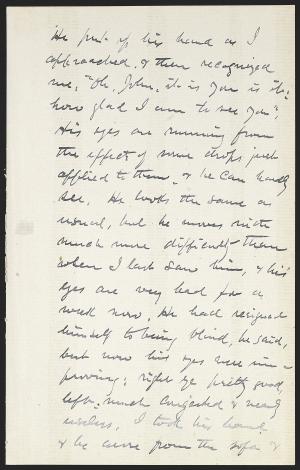 He put up his hand as I
approached, & then recognized
me, "Oh, John, it is you is it:
how glad I am to see you";
His eyes are running from
the effects of some drops just
applied to them, & he can hardly
see. He looks the same as
usual, but he moves with
much more difficulty than
when I last saw him, & his
eyes are very bad for a
week now. He had resigned
himself to being blind, he said,
but now his eyes were im-
proving; right eye pretty good,
left, much congested & nearly
useless. I took his hand
& he arose from the sofa &